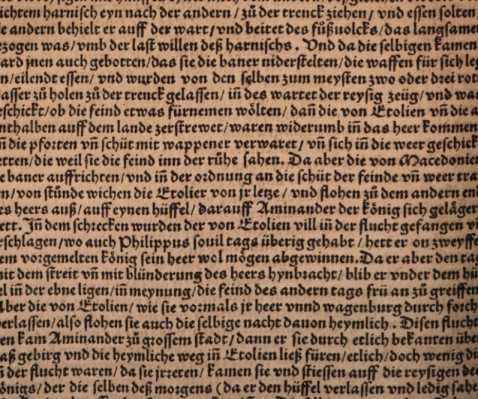 ichtem harnisch eyn nach der andern / zů der trenck ziehen / vnd essen solten
e andern behielt er auff der wart / vnd beitet des fůßuolcks / das langsamer
zogen was / vmb der last willen deß harnischs. Vnd da die selbigen kamen
ard jnen auch gebotten / das sie die baner niderstelten / die waffen für sich leg
n / eilendt essen / vnd wurden von den selben zum meysten zwo oder drei rot
asser zů holen zů der trenck gelassen / in̄ des wartet der reysig zeüg / vnd wa
eschickt / ob die feind etwas fürnemen wölten / dan̄ die von Etolien vn̄ die a
nthalben auff dem lande zerstrewet / waren widerumb in̄ das heer kommen
n̄ die pforten vn̄ schüt mit wappener verwaret / vn̄ sich in̄ die weer geschick
etten / die weil sie die feind inn der růhe sahen. Da aber die von Macedonie
e baner auffrichten / vnd in̄ der ordnung an die schüt der feinde vn̄ weer tra
en / von stůnde wichen die Etolier von jr letze / vnd flohen zů dem andern en
ts heers auß / auff eynen hüffel / darauff Aminander der könig sich geläger
ett. In̄ dem schrecken wurden der von Etolien vill in̄ der flucht gefangen v
rschlagen / wo auch Philippus souil tags überig gehabt / hett er on zweyffe
em vorgemelten könig sein heer wol mögen abgewinnen. Da er aber den tag
it dem streit vn̄ mit blünderung des heers hynbracht / blib er vnder dem hü
el in̄ der ebne ligen / in̄ meynung / die feind des andern tags frü an zů greiffen
ber die von Etolien / wie sie vormals jr heer vnnd wagenburg durch forch
erlassen / also flohen sie auch die selbige nacht dauon heymlich. Disen flucht
en kam Aminander zů grossem stadt / dann er sie durch etlich bekanten übe
aß gebirg vnd die heymliche weg in̄ Etolien ließ füren / etlich / doch wenig di
n̄ der flucht waren / da sie jrreten / kamen sie vnd stiessen auff die reysigen de
önigs / der die selben deß morgens (da er den hüffel verlassen vnd ledig sahe